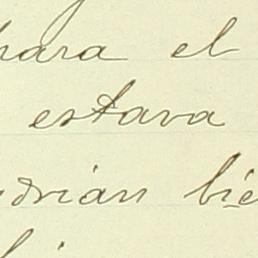 para el
estava
drian bie